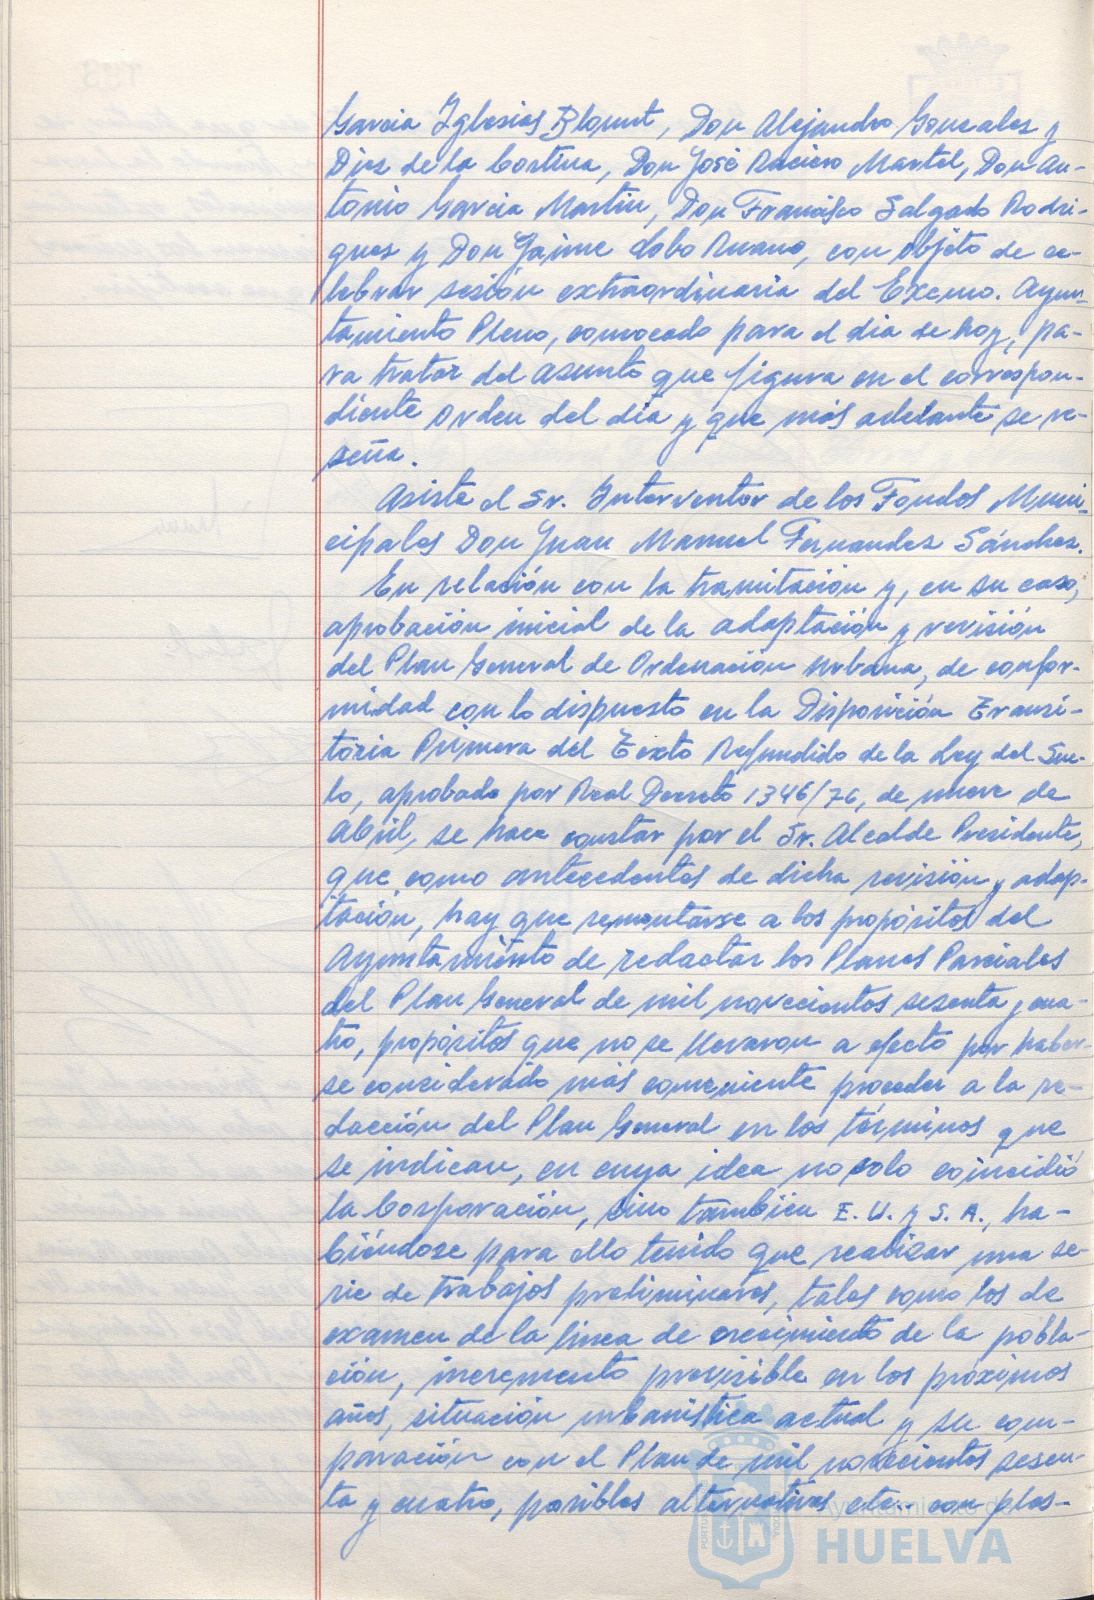 Garcia Iglesias Blqunt, Don Alejandro Gonzales y
Diez de la Cortina, Don José Raciero Martel, Don An-
tonio Garcia Martin, Don Francisco Salgado Rodri-
guez y Don Jaime Lobo Ruano, con objeto de ce-
lebrar sesión extraordinaria del Excmo. Ayun-
tamiento Pleno, convocado para el dia de hoy, pa-
ra tratar del asunto que figura en el correspon-
diente orden del dia y que más adelante se re-
seña.
Asiste el Sr. Interventor de los Fondos Muni-
cipales Don Juan Manuel Fernandez Sánchez.
En relación con la tramitación y, en su caso,
aprobación inicial de la adaptación y revisión
del Plan General de Ordenación Urbana, de confor-
midad con lo dispuesto en la Disposición Transi-
toria Primera del Texto Refundido de la Ley del Sue-
lo, aprobado por Real Decreto 1346/76, de nueve de
Abril, se hace constar por el Sr. Alcalde Presidente,
que como antecedentes de dicha revisión y adap-
tación, hay que remontarse a los propósitos del
Ayuntamiento de redactar los Planes Parciales
del Plan General de mil novecientos sesenta y cua-
tro, propósitos que no se llevaron a efecto por haber-
se considerado más conveniente proceder a la re-
dacción del Plan General en los términos que
se indican, en cuya idea no solo coincidió
la Corporación, sino tambien E. U. y S. A., ha-
biéndose para ello tenido que realizar una se-
rie de trabajos preliminares, tales como los de
examen de la linea de crecimiento de la pobla-
ción, incremento previsible en los próximos
años, situación urbanistica actual y su com-
paración con el Plan de mil novecientos sesen-
ta y cuatro, posibles alternativas etc.. con plas-
Ayuntamiento de
HUELVA